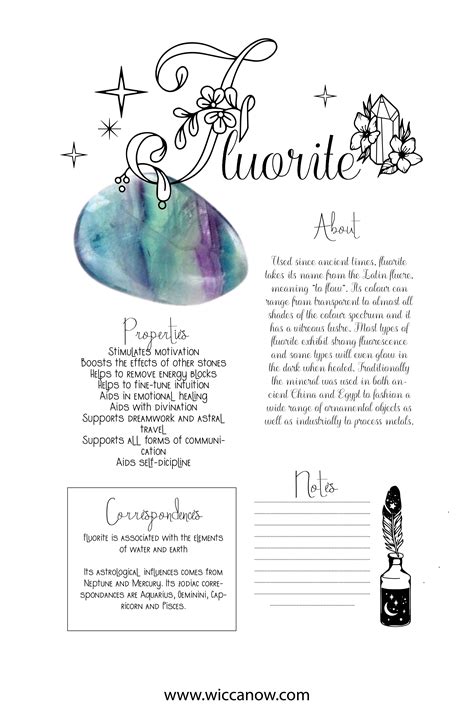 Fluorite
About
Used since ancient times, fluorite
takes its name from the Latin fluere,
meaning "to flow". Its colour can
range from transparent to almost all
shades of the colour spectrum and it
has a vitreous lustre. Most types of
fluorite exhibit strong fluorescence
and some types will even glow in
the dark when heated. Traditionally
the mineral was used in both an-
cient China and Egypt to fashion a
wide range of ornamental objects as
well as industrially to process metals.
Properties
Stimulates motivation
Boosts the effects of other stones
Helps to remove energy blocks
Helps to fine-tune intuition
Aids in emotional healing
Aids with divination
Supports dreamwork and astral
travel
Supports all forms of communi-
cation
Aids self-dicipline
Correspondences
Fluorite is associated with the elements
of water and earth
Its astrological influences comes from
Neptune and Mercury. Its zodiac corre-
spondances are Aquarius, Geminini, Cap-
ricorn and Pisces.
Notes
www.wiccanow.com